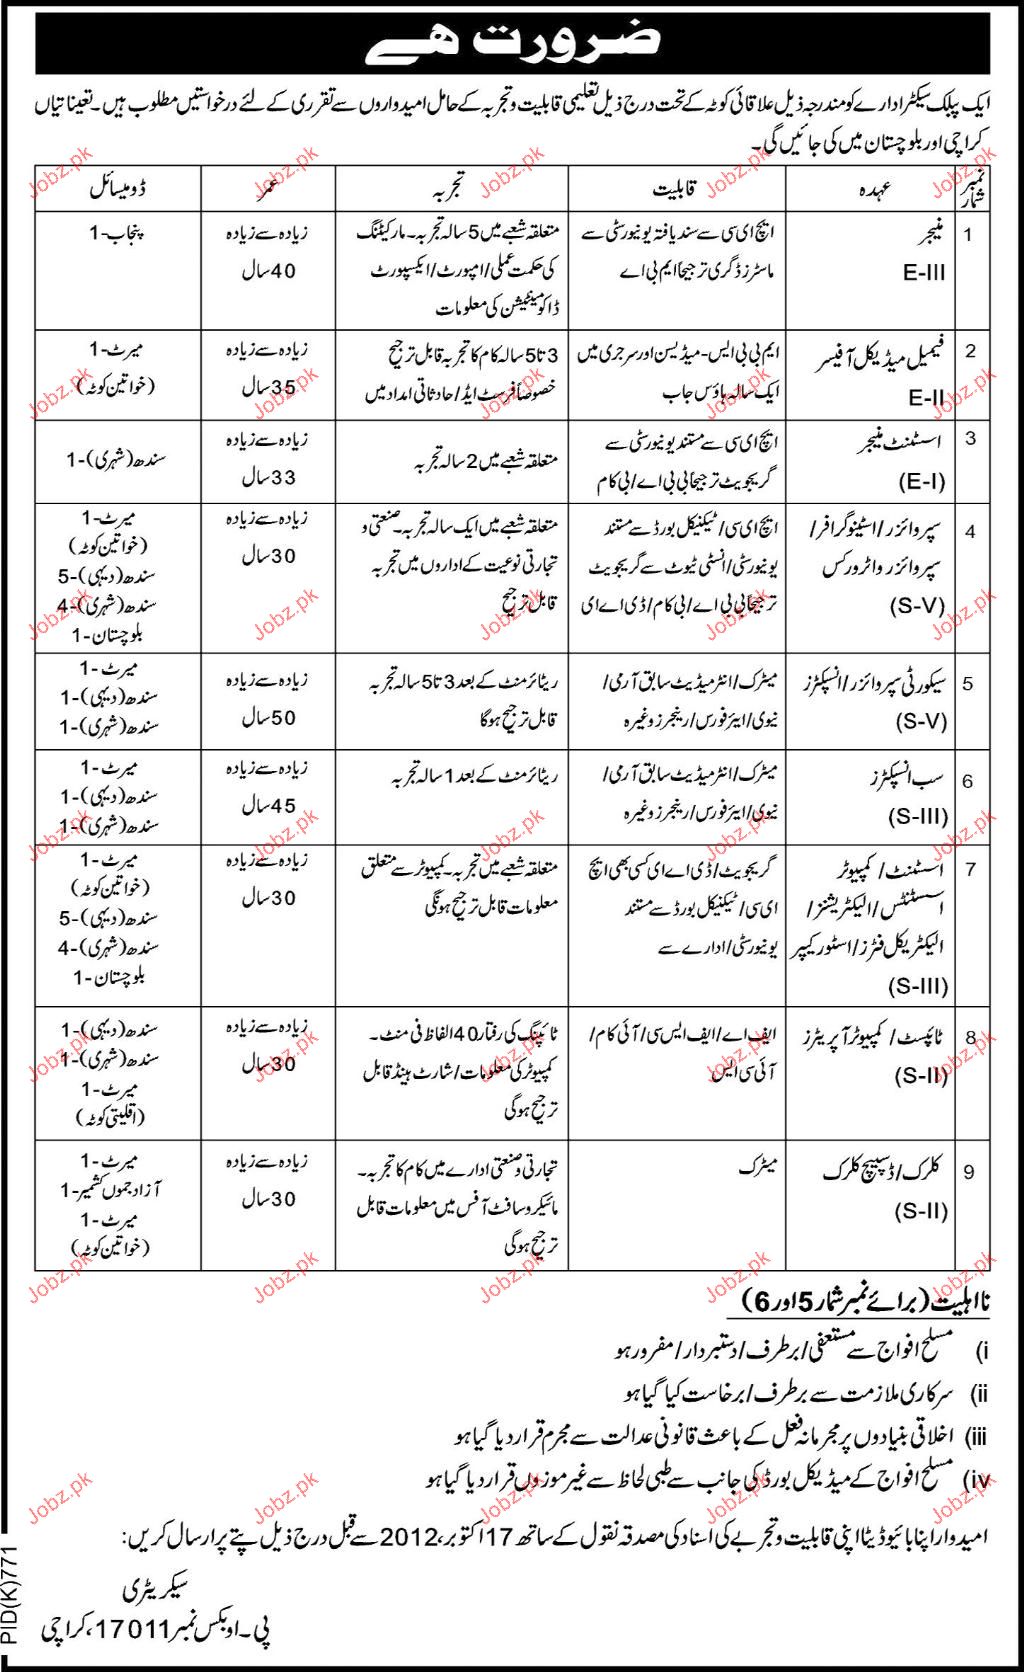 ضرورت ھے
ایک پبلک سیکٹر ادارے کو مندرجہ ذیل علاقائی کوٹہ کے تحت درج ذیل تعلیمی قابلیت و تجربہ کے حامل امیدواروں سے تقرری کے لئے درخواستیں مطلوب ہیں۔ تعیناتیاں
کراچی اور بلوچستان میں کی جائیں گی۔
نمبر شمار | عہدہ | قابلیت | تجربہ | عمر | ڈومیسائل
1
منیجر
E-III
ایچ ای سی سے سند یافتہ یونیورسٹی سے
ماسٹرز ڈگری ترجیحاً ایم بی اے
متعلقہ شعبے میں 5 سالہ تجربہ۔ مارکیٹنگ
کی حکمت عملی/امپورٹ/ایکسپورٹ
ڈاکومینٹیشن کی معلومات
زیادہ سے زیادہ
40 سال
پنجاب-1
2
فیمیل میڈیکل آفیسر
E-II
ایم بی بی ایس-میڈیسن اور سرجری میں
ایک سالہ ہاؤس جاب
3 تا 5 سالہ کام کا تجربہ قابل ترجیح
خصوصاً فرسٹ ایڈ/حادثاتی امداد میں
زیادہ سے زیادہ
35 سال
میرٹ-1
(خواتین کوٹہ)
3
اسسٹنٹ منیجر
(E-I)
ایچ ای سی سے مستند یونیورسٹی سے
گریجویٹ ترجیحاً بی بی اے/بی کام
متعلقہ شعبے میں 2 سالہ تجربہ
زیادہ سے زیادہ
33 سال
سندھ (شہری)-1
4
سپروائزر/اسٹینوگرافر/
سپروائزر واٹر ورکس
(S-V)
ایچ ای سی/ٹیکنیکل بورڈ سے مستند
یونیورسٹی/انسٹی ٹیوٹ سے گریجویٹ
ترجیحاً بی بی اے/بی کام/ڈی اے ای
متعلقہ شعبے میں ایک سالہ تجربہ۔ صنعتی و
تجارتی نوعیت کے اداروں میں تجربہ
قابل ترجیح
زیادہ سے زیادہ
30 سال
میرٹ-1
(خواتین کوٹہ)
سندھ (دیہی)-5
سندھ (شہری)-4
بلوچستان-1
5
سیکورٹی سپروائزر/انسپکٹرز
(S-V)
میٹرک/انٹرمیڈیٹ سابق آرمی/
نیوی/ایئر فورس/رینجرز وغیرہ
ریٹائرمنٹ کے بعد 3 تا 5 سالہ تجربہ
قابل ترجیح ہوگا
زیادہ سے زیادہ
50 سال
میرٹ-1
سندھ (دیہی)-1
سندھ (شہری)-1
6
سب انسپکٹرز
(S-III)
میٹرک/انٹرمیڈیٹ سابق آرمی/
نیوی/ایئر فورس/رینجرز وغیرہ
ریٹائرمنٹ کے بعد 1 سالہ تجربہ
زیادہ سے زیادہ
45 سال
میرٹ-1
سندھ (دیہی)-1
سندھ (شہری)-1
7
اسسٹنٹ/کمپیوٹر
اسسٹنٹس/الیکٹریشنز/
الیکٹریکل فٹرز/اسٹور کیپر
(S-III)
گریجویٹ/ڈی اے ای کسی بھی ایچ
ای سی/ٹیکنیکل بورڈ سے مستند
یونیورسٹی/ادارے سے
متعلقہ شعبے میں تجربہ۔ کمپیوٹر سے متعلق
معلومات قابل ترجیح ہونگی
زیادہ سے زیادہ
30 سال
میرٹ-1
(خواتین کوٹہ)
سندھ (دیہی)-5
سندھ (شہری)-4
بلوچستان-1
8
ٹائپسٹ/کمپیوٹر آپریٹرز
(S-II)
ایف اے/ایف ایس سی/آئی کام/
آئی سی ایس
ٹائپنگ کی رفتار 40 الفاظ فی منٹ۔
کمپیوٹر کی معلومات/شارٹ ہینڈ قابل
ترجیح ہوگی
زیادہ سے زیادہ
30 سال
سندھ (دیہی)-1
سندھ (شہری)-1
میرٹ-1
(اقلیتی کوٹہ)
9
کلرک/ڈسپیچ کلرک
(S-II)
میٹرک
تجارتی و صنعتی ادارے میں کام کا تجربہ۔
مائیکروسافٹ آفس میں معلومات قابل
ترجیح ہوگی
زیادہ سے زیادہ
30 سال
میرٹ-1
آزاد جموں کشمیر-1
میرٹ-1
(خواتین کوٹہ)
نااہلیت (برائے نمبر شمار 5 اور 6)
i) مسلح افواج سے مستعفی/برطرف/دستبردار/مفرور ہو
ii) سرکاری ملازمت سے برطرف/برخاست کیا گیا ہو
iii) اخلاقی بنیادوں پر مجرمانہ فعل کے باعث قانونی عدالت سے مجرم قرار دیا گیا ہو
iv) مسلح افواج کے میڈیکل بورڈ کی جانب سے طبی لحاظ سے غیر موزوں قرار دیا گیا ہو
امیدوار اپنا بائیو ڈیٹا اپنی قابلیت و تجربے کی اسناد کی مصدقہ نقول کے ساتھ 17 اکتوبر، 2012 سے قبل درج ذیل پتے پر ارسال کریں:
سیکریٹری
پی۔او بکس نمبر 17011، کراچی
PID(K)771
Jobz.pk